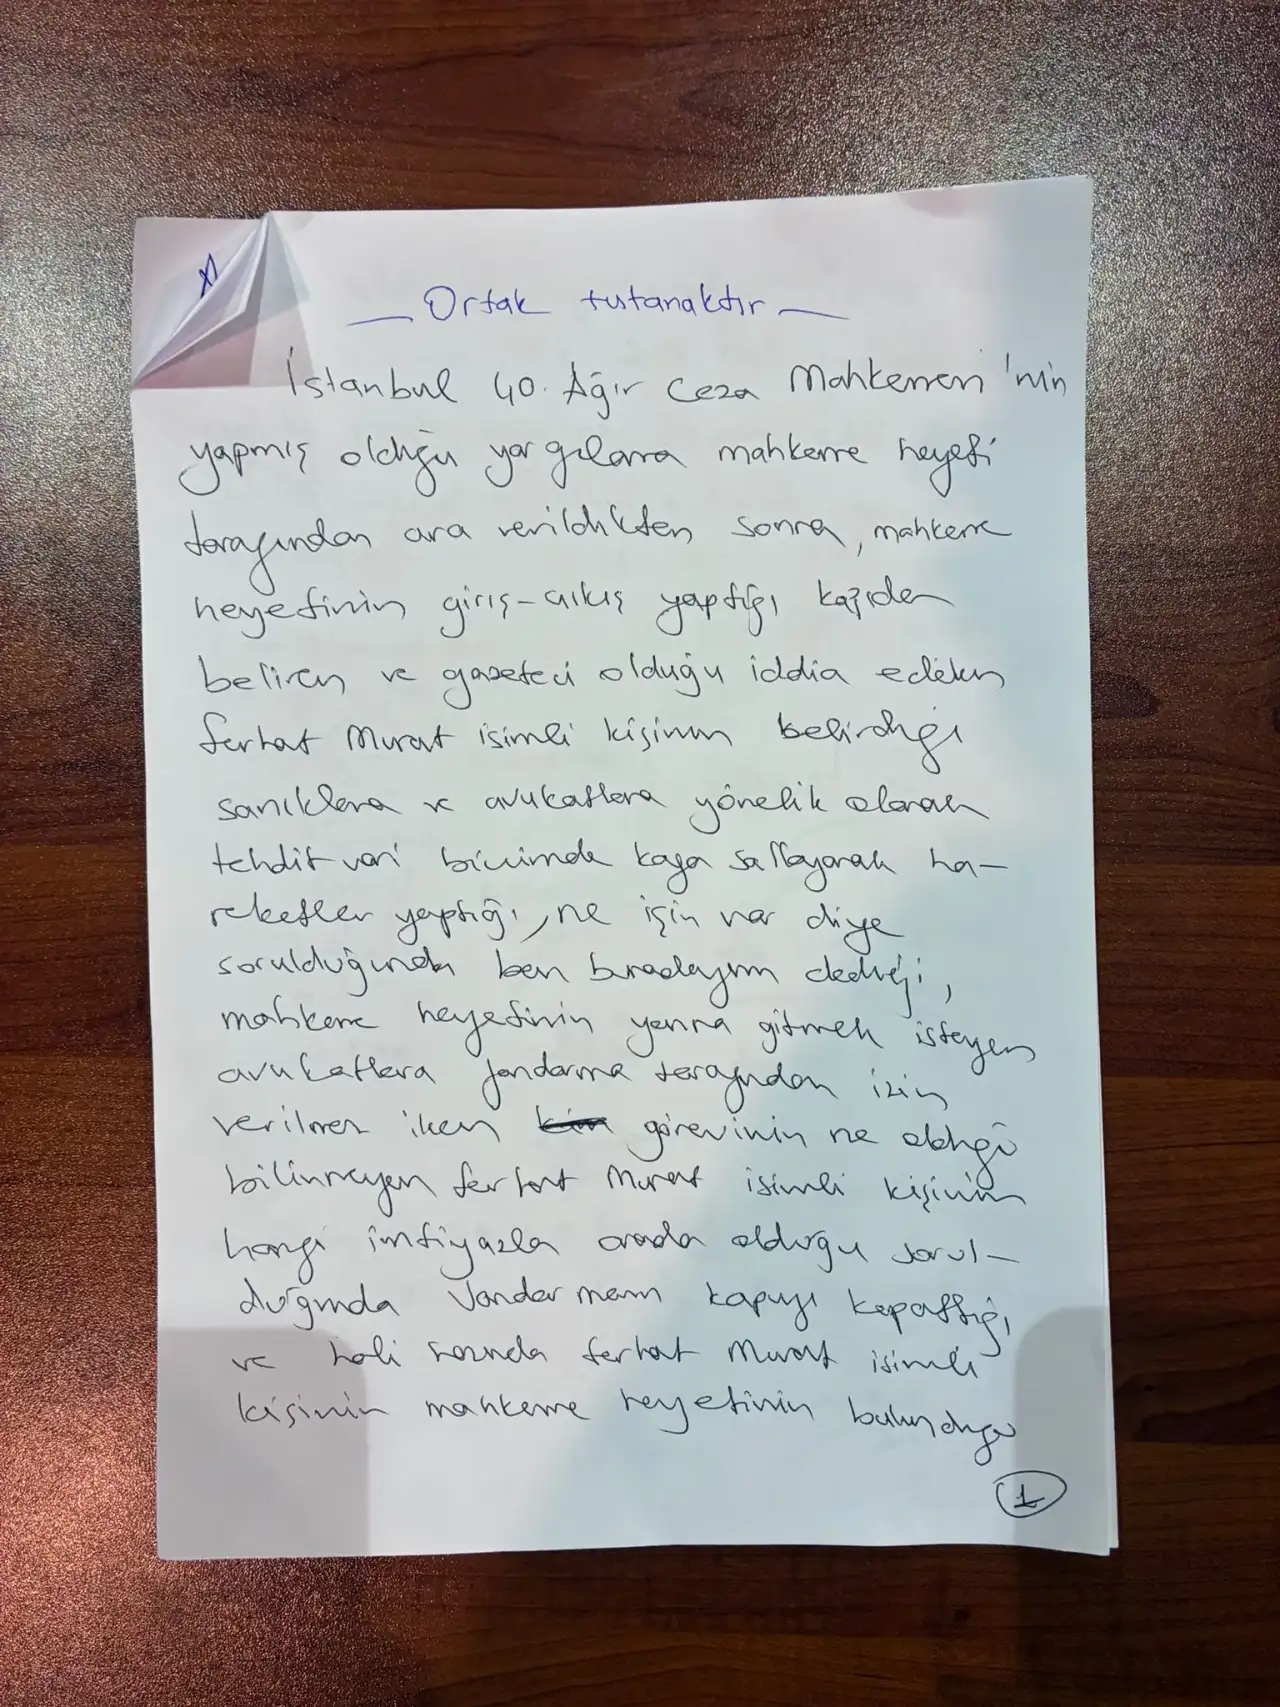 Ortak tutanaktır
İstanbul 40. Ağır Ceza Mahkemesi'nin
yapmış olduğu yargılama mahkeme heyeti
tarafından ara verildikten sonra, mahkeme
heyetinin giriş-çıkış yaptığı kapıdan
beliren ve gazeteci olduğu iddia edilen
Ferhat Murat isimli kişinin belirdiği
sanıklara ve avukatlara yönelik olarak
tehditvari biçimde kafa sallayarak ha-
reketler yaptığı, ne işin var diye
sorulduğunda ben buradayım dediği,
mahkeme heyetinin yanına gitmek isteyen
avukatlara jandarma tarafından izin
verilmez iken görevinin ne olduğu
bilinmeyen Ferhat Murat isimli kişinin
hangi imtiyazla orada olduğu sorul-
duğunda Jandarmanın kapıyı kapattığı
ve hali hazırda Ferhat Murat isimli
kişinin mahkeme heyetinin bulunduğu
1